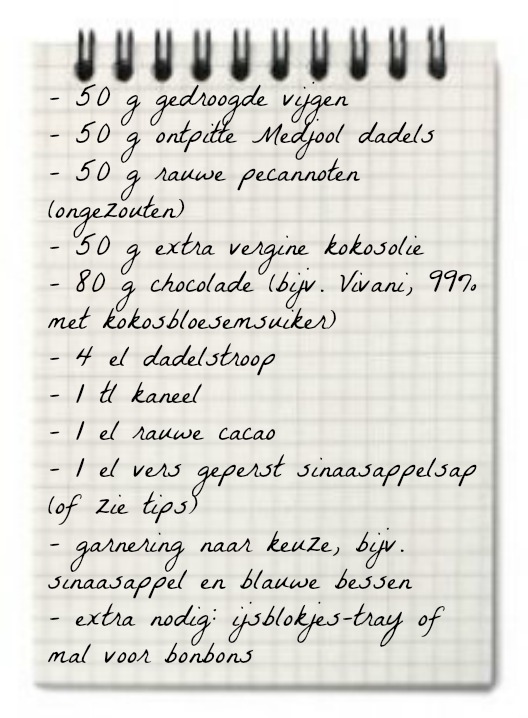 - 50 g gedroogde vijgen
- 50 g ontpitte Medjool dadels
- 50 g rauwe pecannoten
(ongezouten)
- 50 g extra vergine kokosolie
- 80 g chocolade (bijv. Vivani, 99%
met kokosbloesemsuiker)
- 4 el dadelstroop
- 1 tl kaneel
- 1 el rauwe cacao
- 1 el vers geperst sinaasappelsap
(of zie tips)
- garnering naar keuze, bijv.
sinaasappel en blauwe bessen
- extra nodig: ijsblokjes-tray of
mal voor bonbons